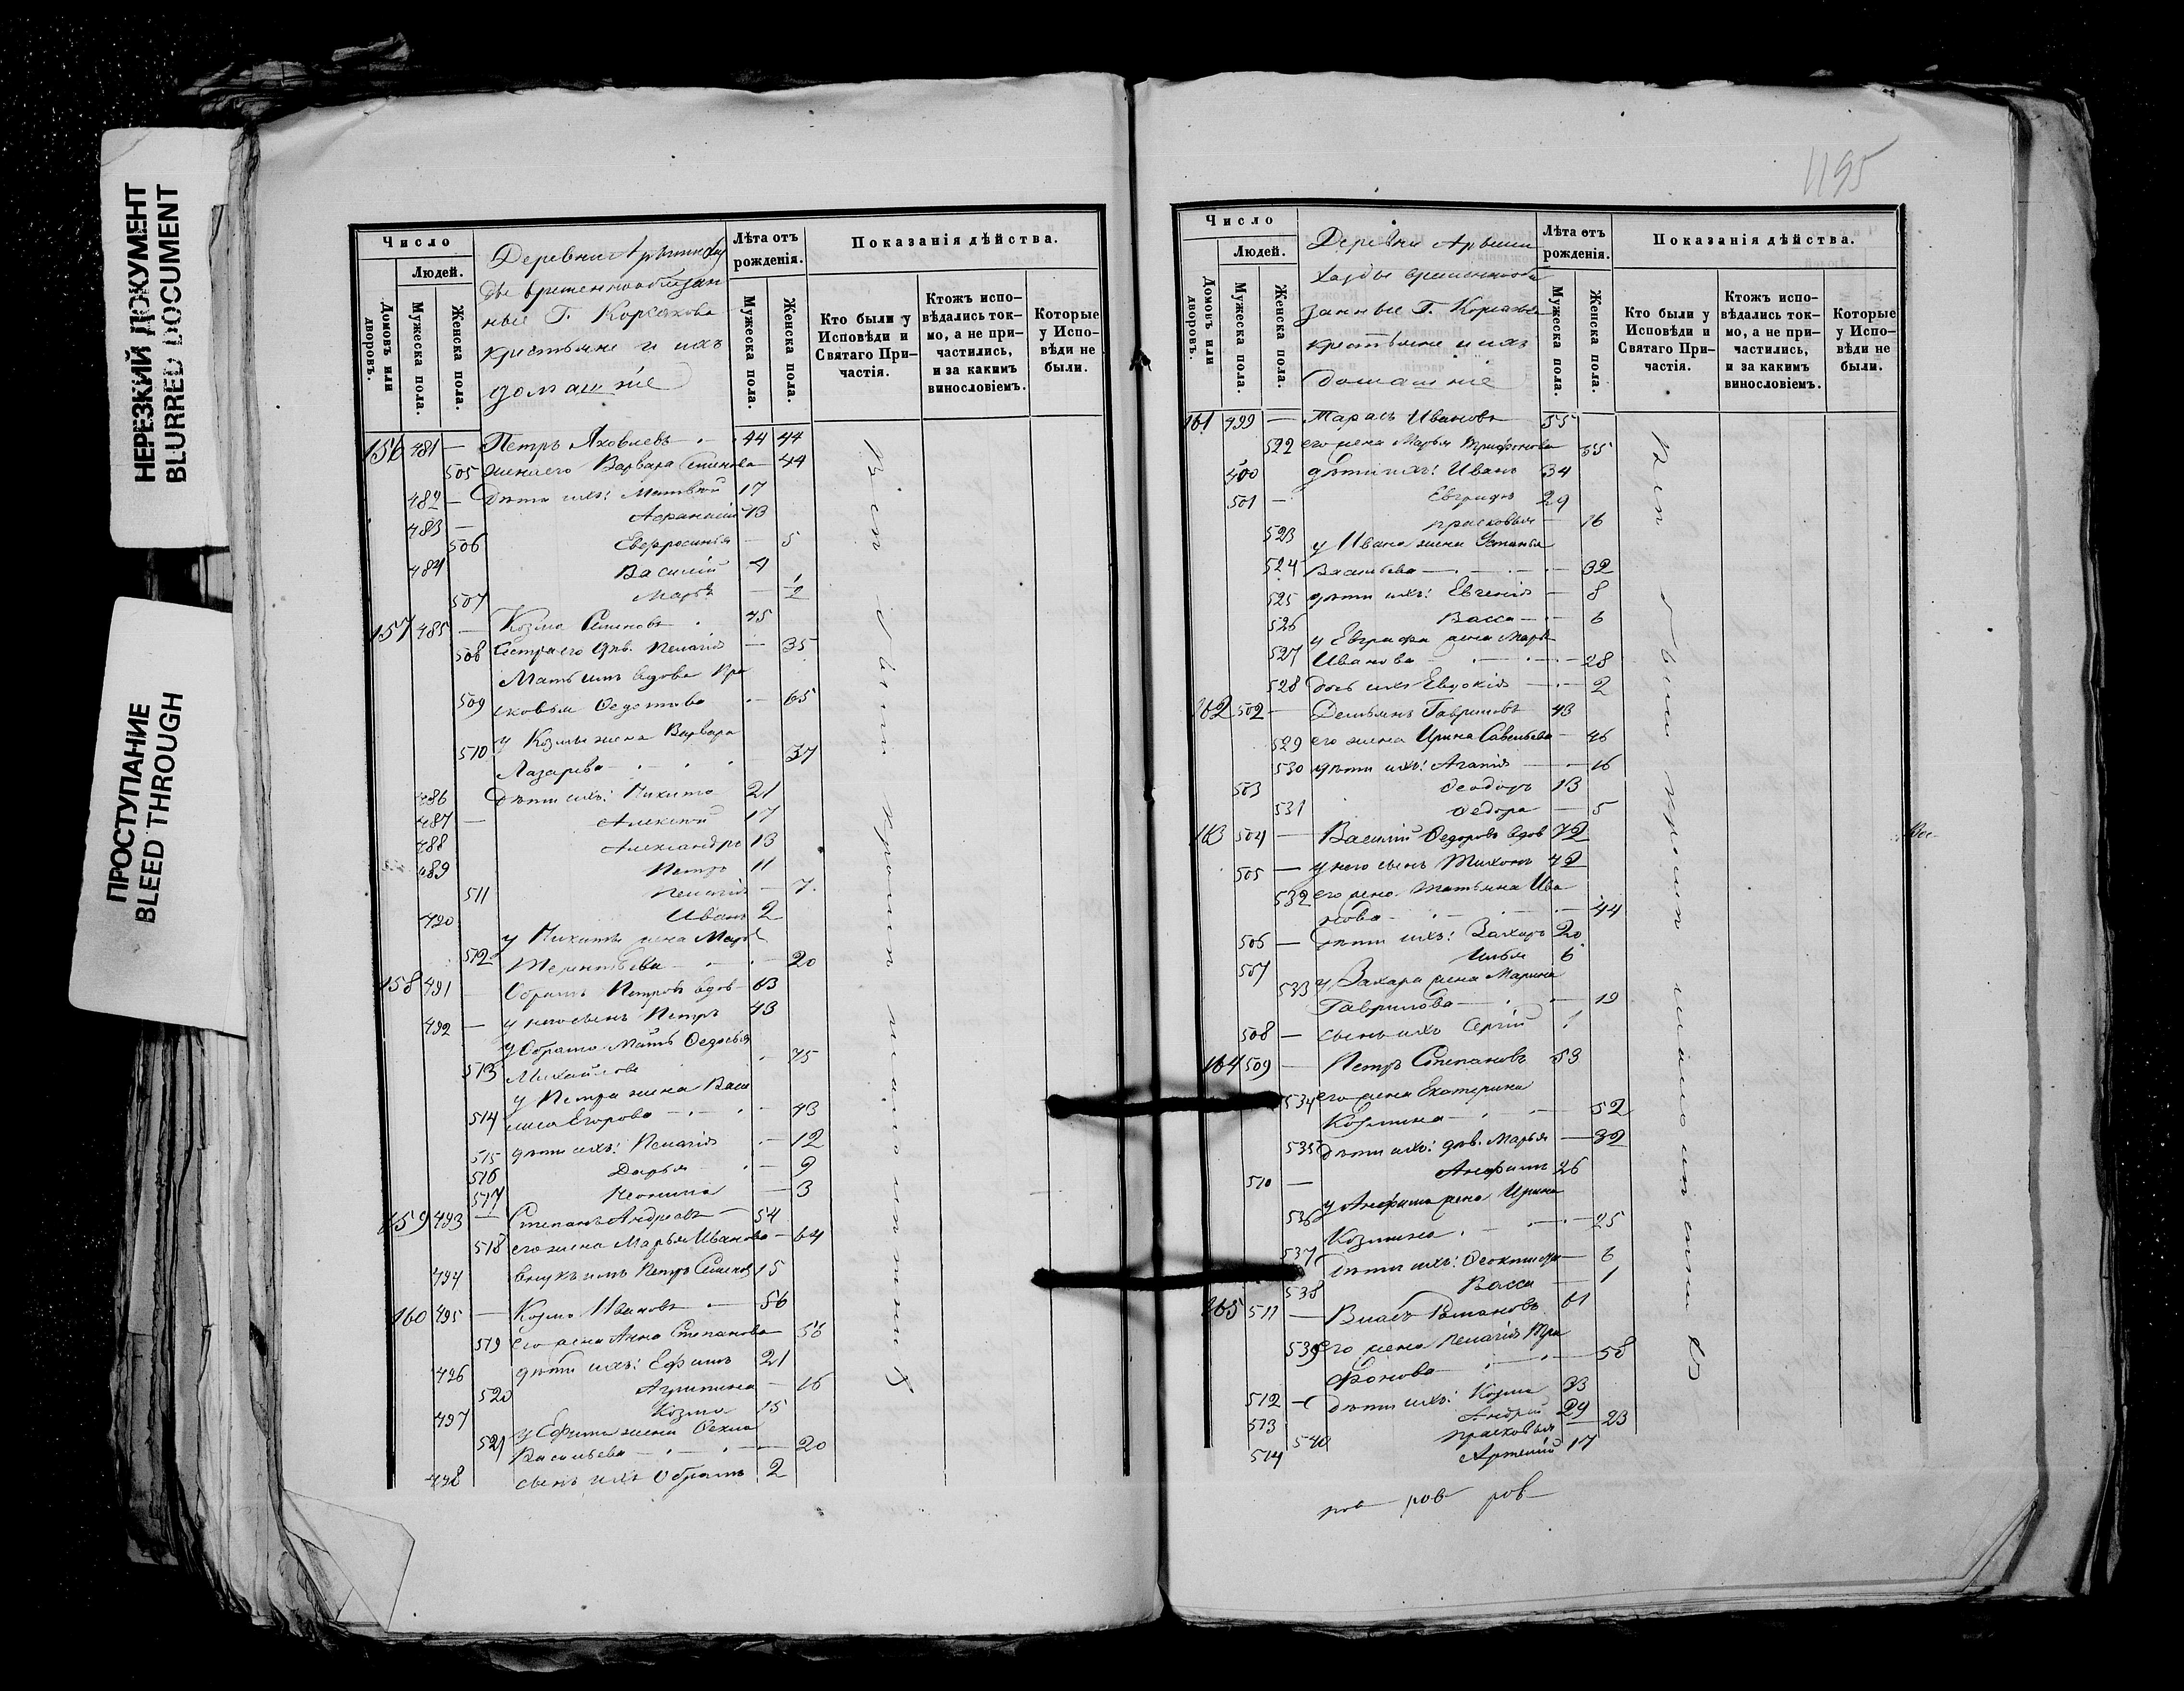 НЕРЕЗКИЙ ДОКУМЕНТ
BLURRED DOCUMENT
ПРОСТУПАНИЕ
BLEED THROUGH
Число
Людей.
Домовъ или дворовъ.
Мужеска пола.
Женска пола.
Деревни
временнообязан
ные Г. Корсакова
крестьяне и ихъ
домашніе
Лѣта отъ рожденія.
Мужеска пола.
Женска пола.
Показанія дѣйства.
Кто были у Исповѣди и Святаго При-частія.
Ктожъ испо-вѣдались ток-мо, а не при-частились, и за какимъ винословіемъ.
Которые у Испо-вѣди не были.
156 481 — Петръ Яковлевъ 44 44
505 жена его Варвара Семенова 44
482 — дѣти ихъ: Матвѣй 17
483 — Афанасій 13
506 Евфросинья — 5
484 Василій 4
507 Марья — 1/2
157 485 — Козма Семеновъ 45
508 Сестра его дѣв. Пелагія — 35
Мать имъ вдова Пра
509 сковья Федотова — 65
у Козмы жена Варвара
510 Лазарева 37
486 дѣти ихъ: Никита 21
487 — Алексѣй 17
488 Александръ 13
489 Петръ 11
511 Пелагія — 7
490 Иванъ 2
у Никиты жена Марья
512 Терентьева — 20
158 491 Петровъ вдов 63
492 — у него сынъ Петръ 43
Мать Федосья
513 Михайлова 75
у Петра жена Васи
514 лиса Егорова 43
515 дѣти ихъ: Пелагія — 12
516 Дарья — 9
517 — 3
159 493 — Степанъ Андреевъ — 54
518 его жена Марья Иванова — 64
494 внукъ имъ Петръ Семенов 15
160 495 — Козма Ивановъ — 56
519 его жена Анна Степанова 56
496 дѣти ихъ: Ефимъ 21
520 Агрипина — 16
497 Козма 15
у Ефима жена Фекла
521 Васильева — 20
498 сынъ ихъ 2
1195
Число
Людей.
Домовъ или дворовъ.
Мужеска пола.
Женска пола.
Деревни
временнообя
занные Г. Корсакова
крестьяне и ихъ
домашніе
Лѣта отъ рожденія.
Мужеска пола.
Женска пола.
Показанія дѣйства.
Кто были у Исповѣди и Святаго При-частія.
Ктожъ испо-вѣдались ток-мо, а не при-частились, и за какимъ винословіемъ.
Которые у Испо-вѣди не были.
161 499 — Тарасъ Ивановъ 55
522 его жена Марья Трифонова 55
500 дѣти ихъ: Иванъ 34
501 — Евграфъ 29
523 Прасковья — 16
у Ивана жена Устинья
524 Васильева — 32
525 дѣти ихъ: Евгенія — 8
526 Васса — 6
у Евграфа жена Марья
527 Иванова — 28
528 дочь ихъ Евдокія — 2
162 502 — Демьянъ Гавриловъ 43
529 его жена Ирина Савельева — 46
530 дѣти ихъ: Агапія — 16
503 Феодоръ 13
531 Федора — 5
163 504 — Василій Федоровъ вдов 72
505 — у него сынъ Тихонъ 42
532 его жена Татьяна Ива
нова — 44
506 — дѣти ихъ: Захаръ 20
507 Илья 6
533 у Захара жена Марина
Гаврилова — 19
508 — сынъ ихъ Сергій 1
164 509 — Петръ Степановъ 53
534 его жена Екатерина
Козмина — 52
535 дѣти ихъ: дѣв. Марья — 32
510 — Анфимъ 26
536 у Анфима жена Ирина
Козмина — 25
537 дѣти ихъ: Феоктиста — 6
538 Васса — 1
165 511 — Власъ Романовъ 61
539 его жена Пелагія Три
фонова — 58
512 — дѣти ихъ: Козма 33
513 Андрей 29
540 Прасковья — 23
514 Артемій 17